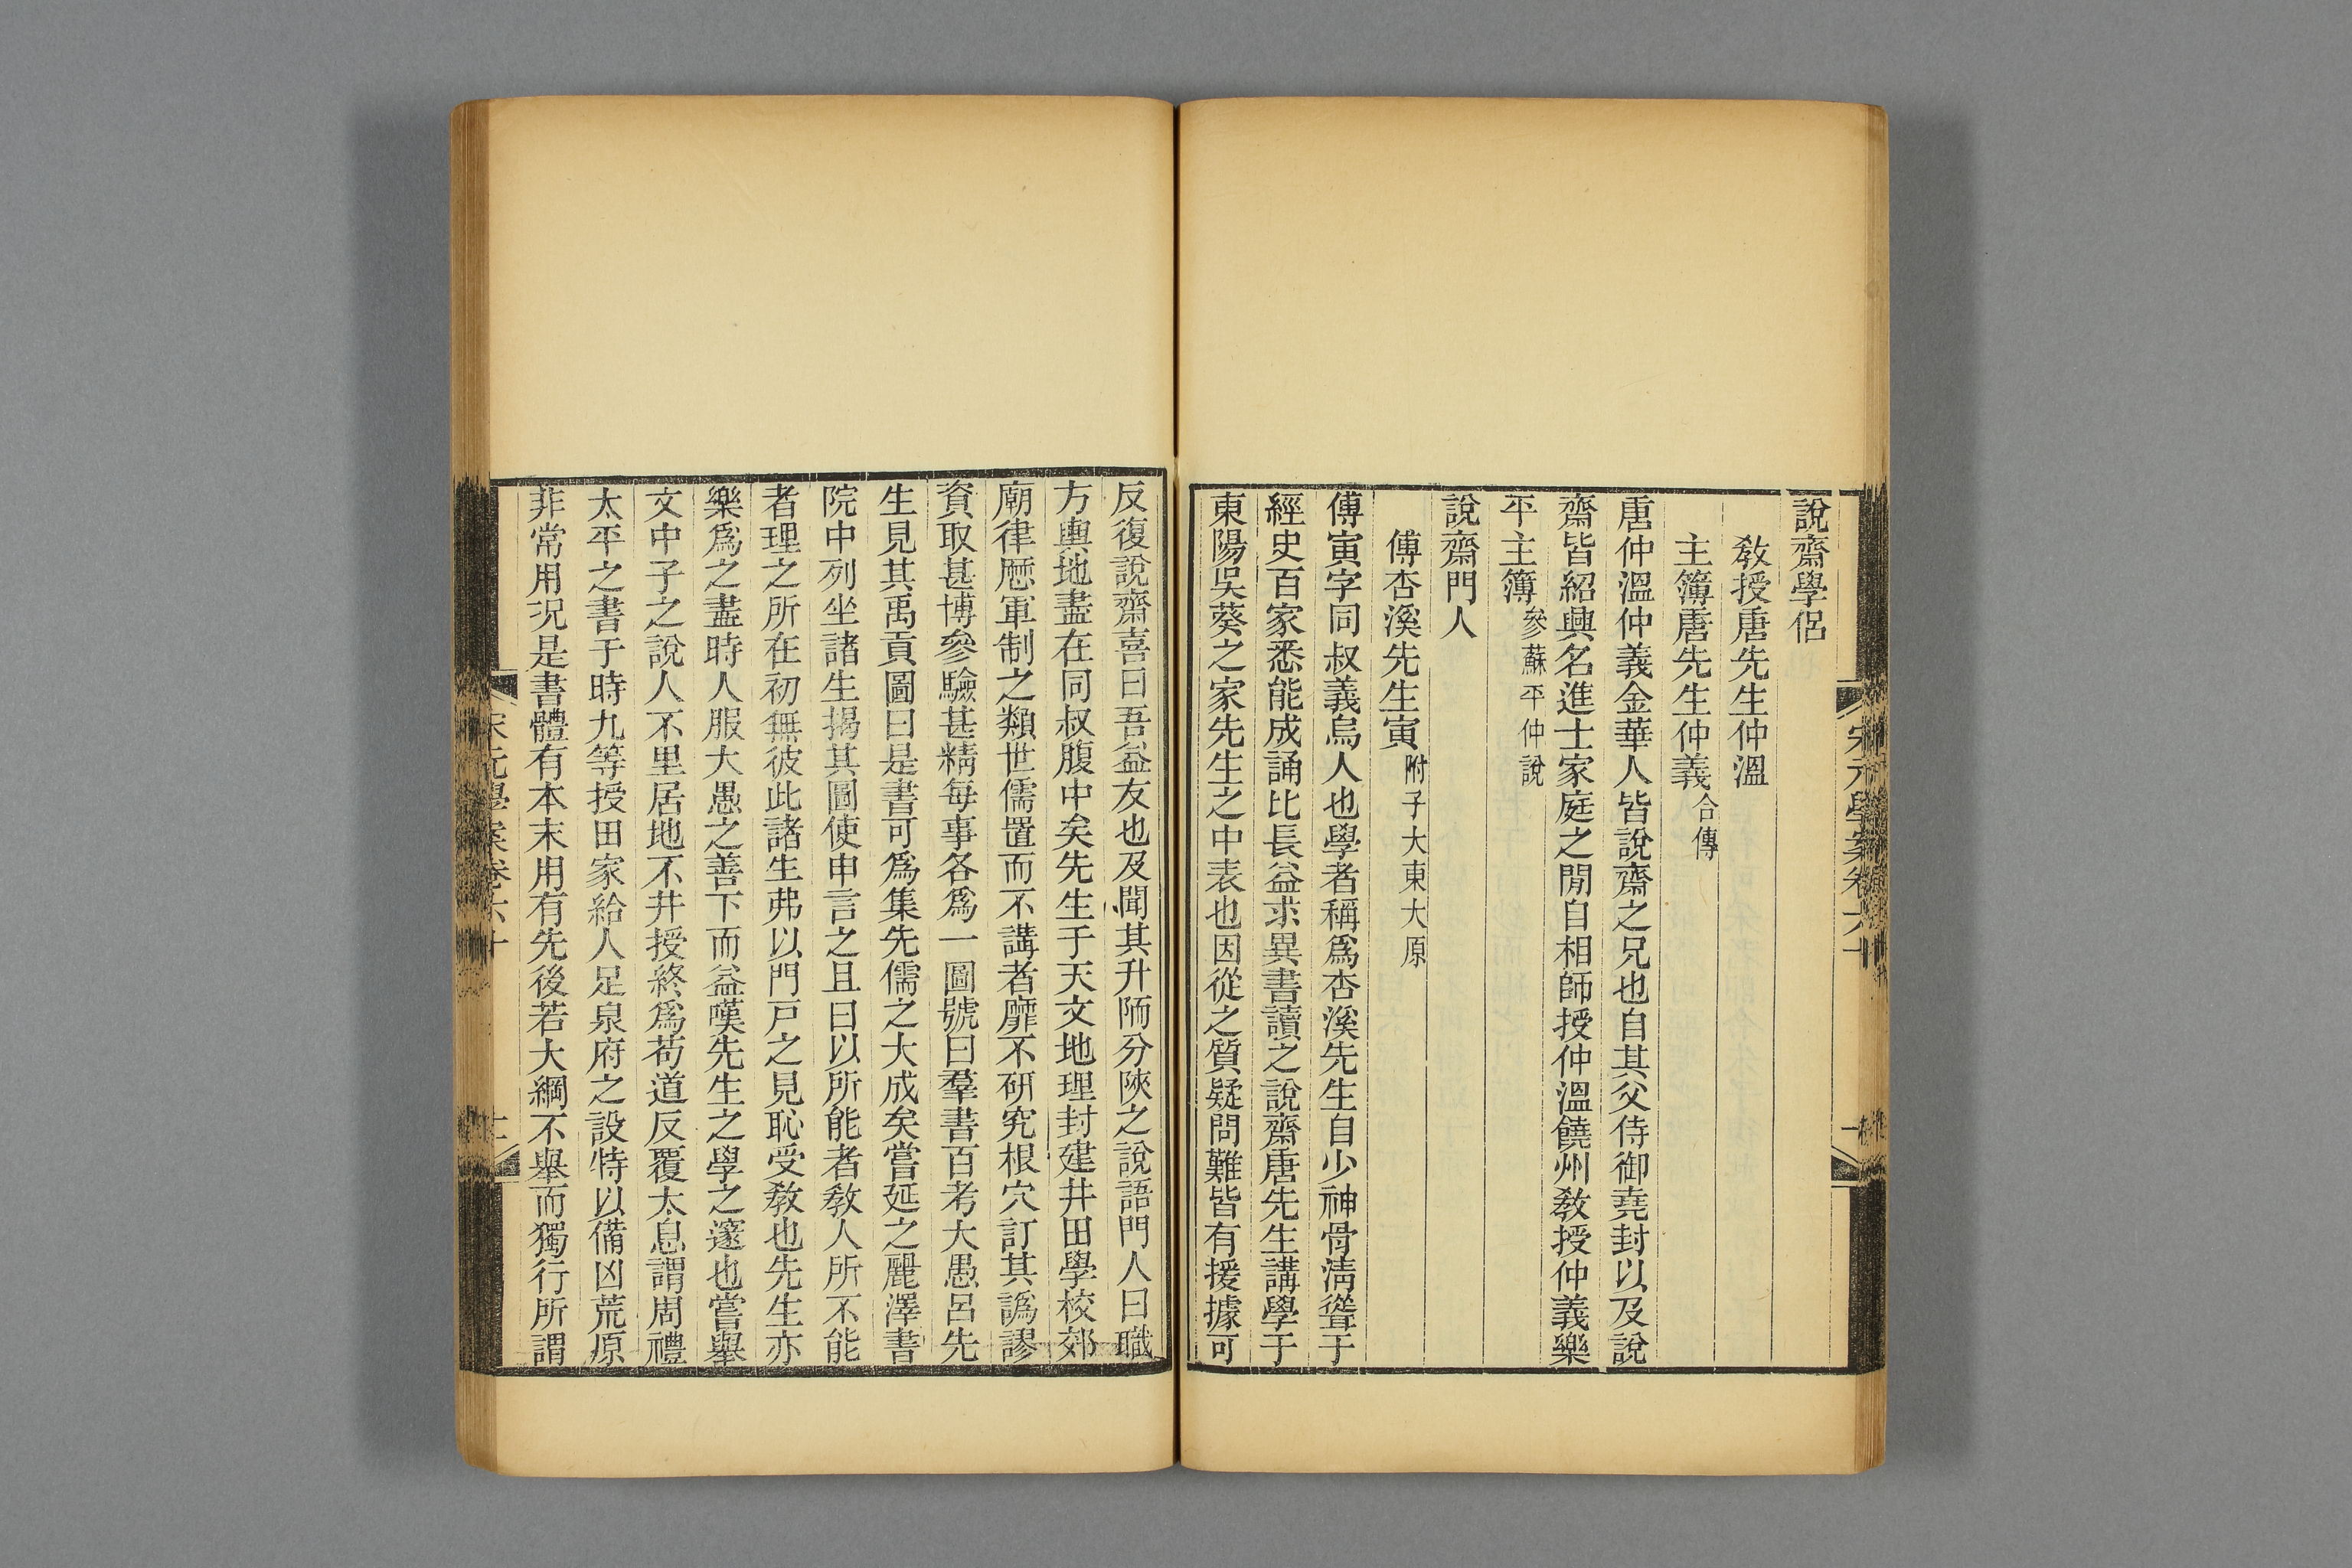 說齋學侶
敎授唐先生仲溫
主簿唐先生仲義合傳
唐仲溫仲義金華人皆說齋之兄也自其父侍御堯封以及說
齋皆紹興名進士家庭之閒自相師授仲溫饒州敎授仲義樂
平主簿參蘇平仲說
說齋門人
傅杏溪先生寅附子大東大原
傅寅字同叔義烏人也學者稱爲杏溪先生自少神骨淸聳于
經史百家悉能成誦比長益求異書讀之說齋唐先生講學于
東陽吳葵之家先生之中表也因從之質疑問難皆有援據可
反復說齋喜曰吾益友也及聞其升陑分陝之說語門人曰職
方輿地盡在同叔腹中矣先生于天文地理封建井田學校郊
廟律厯軍制之類世儒置而不講者靡不研究根穴訂其譌謬
資取甚博參驗甚精每事各爲一圖號曰羣書百考大愚呂先
生見其禹貢圖曰是書可爲集先儒之大成矣嘗延之麗澤書
院中列坐諸生揭其圖使申言之且曰以所能者敎人所不能
者理之所在初無彼此諸生弗以門戸之見恥受敎也先生亦
樂爲之盡時人服大愚之善下而益嘆先生之學之邃也嘗舉
文中子之說人不里居地不井授終爲苟道反覆太息謂周禮
太平之書于時九等授田家給人足泉府之設特以備凶荒原
非常用況是書體有本末用有先後若大綱不舉而獨行所謂
宋元學案卷六十